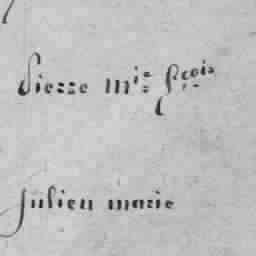 Pierre m.ie f.çois
Julien marie